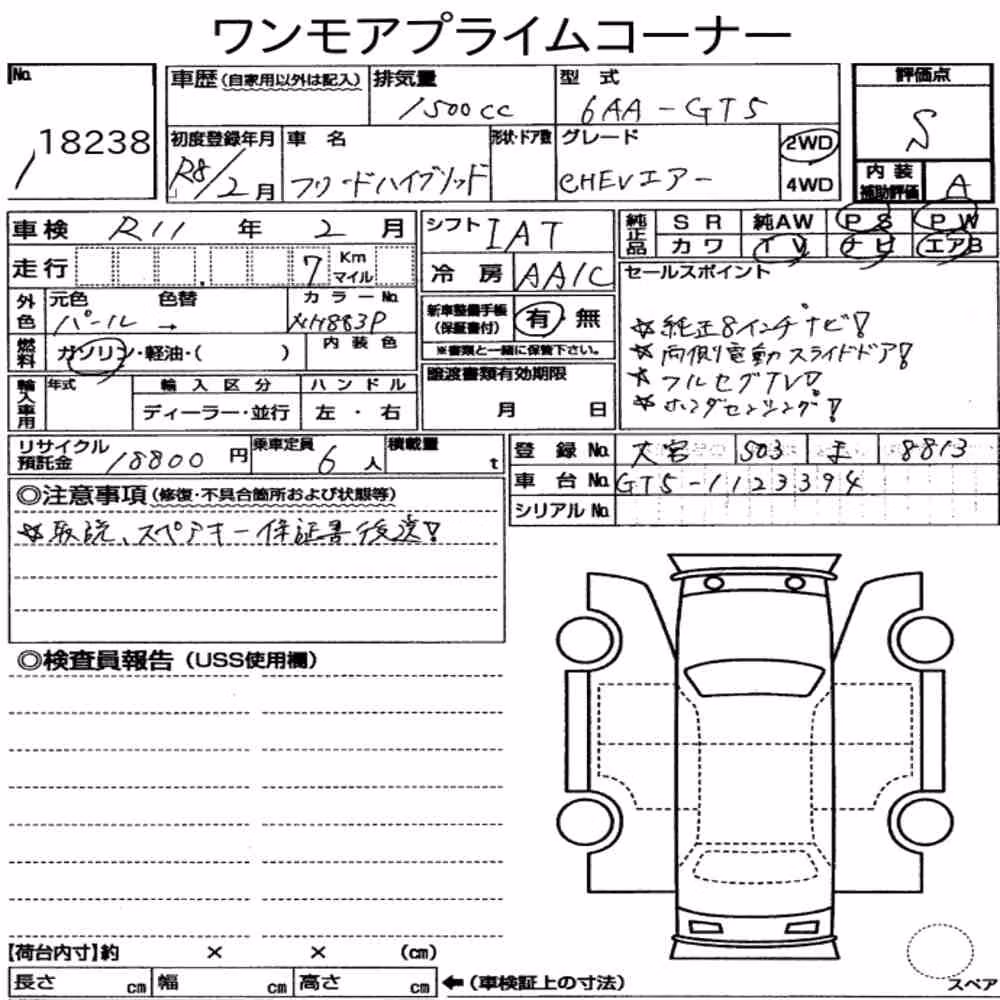 ワンモアプライムコーナー
No. 18238
車歴(自家用以外は記入) 排気量 1500cc 型式 6AA-GT5
初度登録年月 R8/2月 車名 フリードハイブリッド 形状・ドア数 グレード eHEVエアー 2WD 4WD
評価点 S
内装補助評価 A
車検 R11年 2月
走行 7 Km マイル
外色 元色 パール → 色替 カラーNo. NH883P
燃料 ガソリン・軽油・( ) 内装色
輸入車用 年式 輸入区分 ディーラー・並行 ハンドル 左・右
シフト IAT
冷房 AA/C
新車整備手帳(保証書付) 有 無
※書類と一緒に保管下さい。
譲渡書類有効期限
月 日
純正品 SR 純AW PS PW
カワ TV ナビ エアB
セールスポイント
☆純正8インチナビ!
☆両側電動スライドドア!
☆フルセグTV!
☆ホンダセンシング!
リサイクル預託金 18800円 乗車定員 6人 積載量 t
登録No. 大宮 503 8813
車台No. GT5-1123394
シリアルNo.
◎注意事項(修復・不具合箇所および状態等)
☆取説、スペアキー保証書後送!
◎検査員報告(USS使用欄)
【荷台内寸】約 × × (cm)
長さ cm 幅 cm 高さ cm ←(車検証上の寸法)
スペア